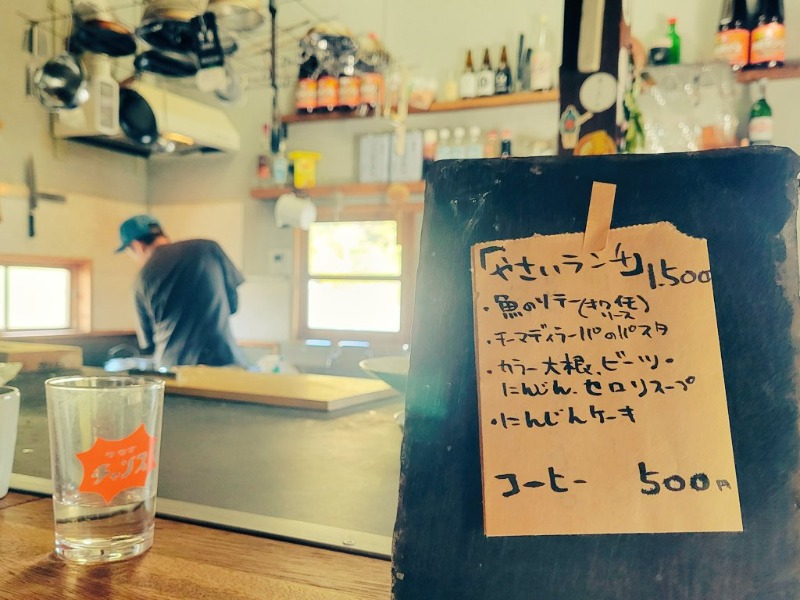 「やさいランチ」1,500
・魚のソテー(
ソース
・チーマディラーパのパスタ
・カラー大根、ビーツ・
にんじん、セロリスープ
・にんじんケーキ
コーヒー 500円
チャンス